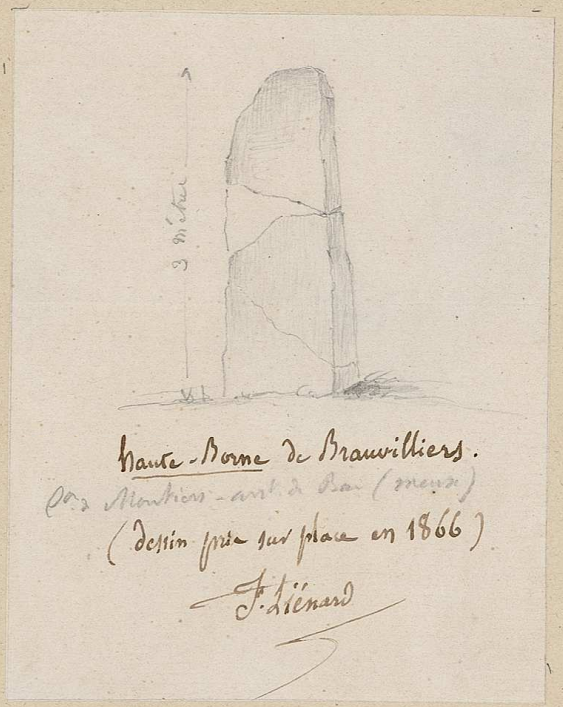 3 mètres
haute-Borne de Brauvilliers.
Con de Montiers - arrt de Bar (meuse)
(dessin pris sur place en 1866)
F. Liénard